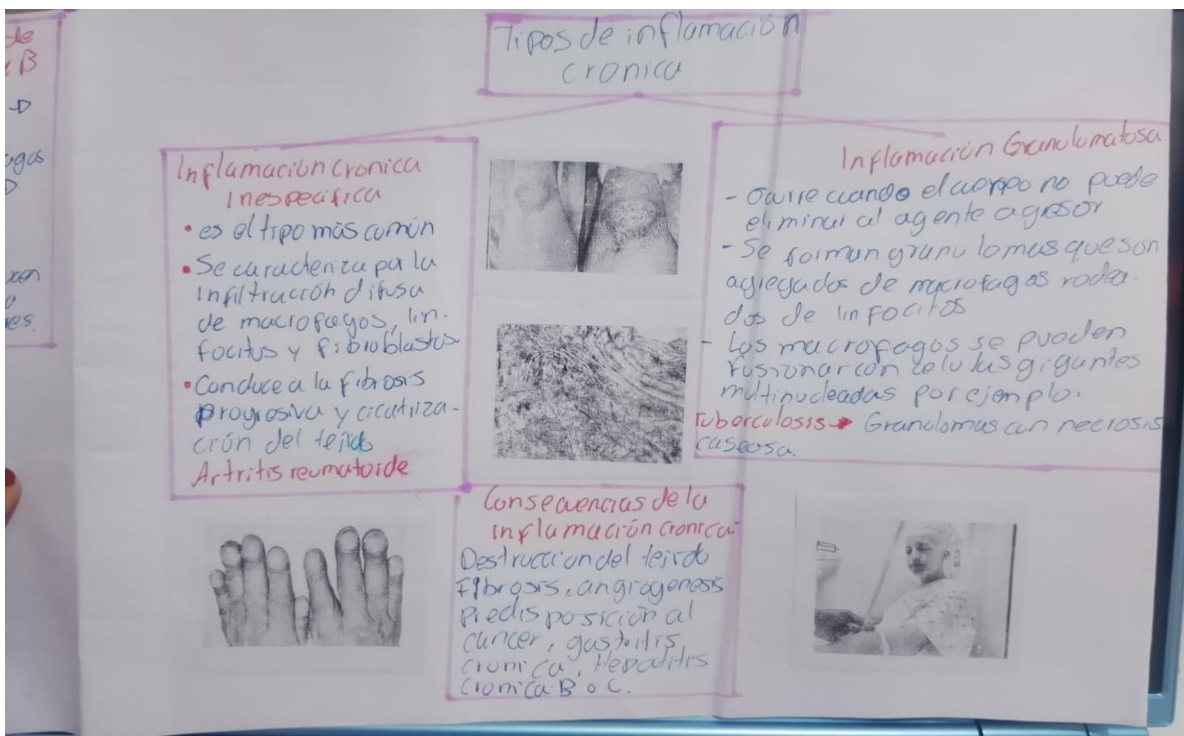 de
B
ogos
es.
Tipos de inflamación
cronica
Inflamación Cronica
Inespecifica
• es el tipo más común
• Se caracteriza por la
infiltracción difusa
de macrofagos, lin-
focitos y fibroblastos.
• Conduce a la fibrosis
progresiva y cicatriza-
ción del tejido
Artritis reumatoide
Inflamación Granulomatosa
- Ocurre cuando el cuerpo no puede
eliminar al agente agresor
- Se forman granulomas que son
agregados de macrofagos rodea-
dos de linfocitos
- Los macrofagos se pueden
fusionar con celulas gigantes
multinucleadas por ejemplo.
Tuberculosis → Granulomas con necrosis
caseosa.
Consecuencias de la
inflamación cronica.
Destruccion del tejido
Fibrosis, angiogenesis
Predisposición al
cancer, gastritis
cronica, Hepatitis
cronica B o C.